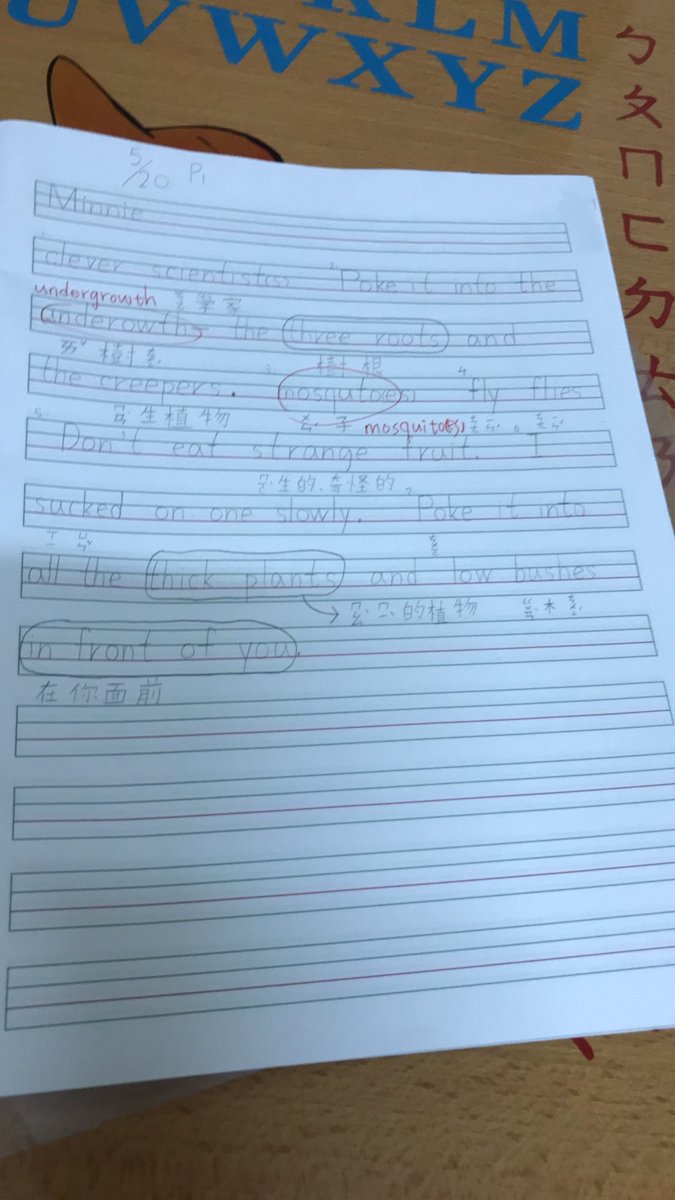 KLM
UVWXYZ
ㄅ
ㄆ
ㄇ
ㄈ
ㄉ
ㄊ
ㄋ
5/20 P1
Minnie
1. clever scientist(s) 2. Poke it into the
undergrowth 學家
anderowth the three roots and
樹 樹根
the creepers. 3. mosquto(es) 4. fly flies
生植物 子 mosquito(es)
5. Don't eat strange fruit. I
生的、奇怪的
sucked on one slowly. Poke it into
all the thick plants and low bushes
的植物 木
in front of you.
在你面前